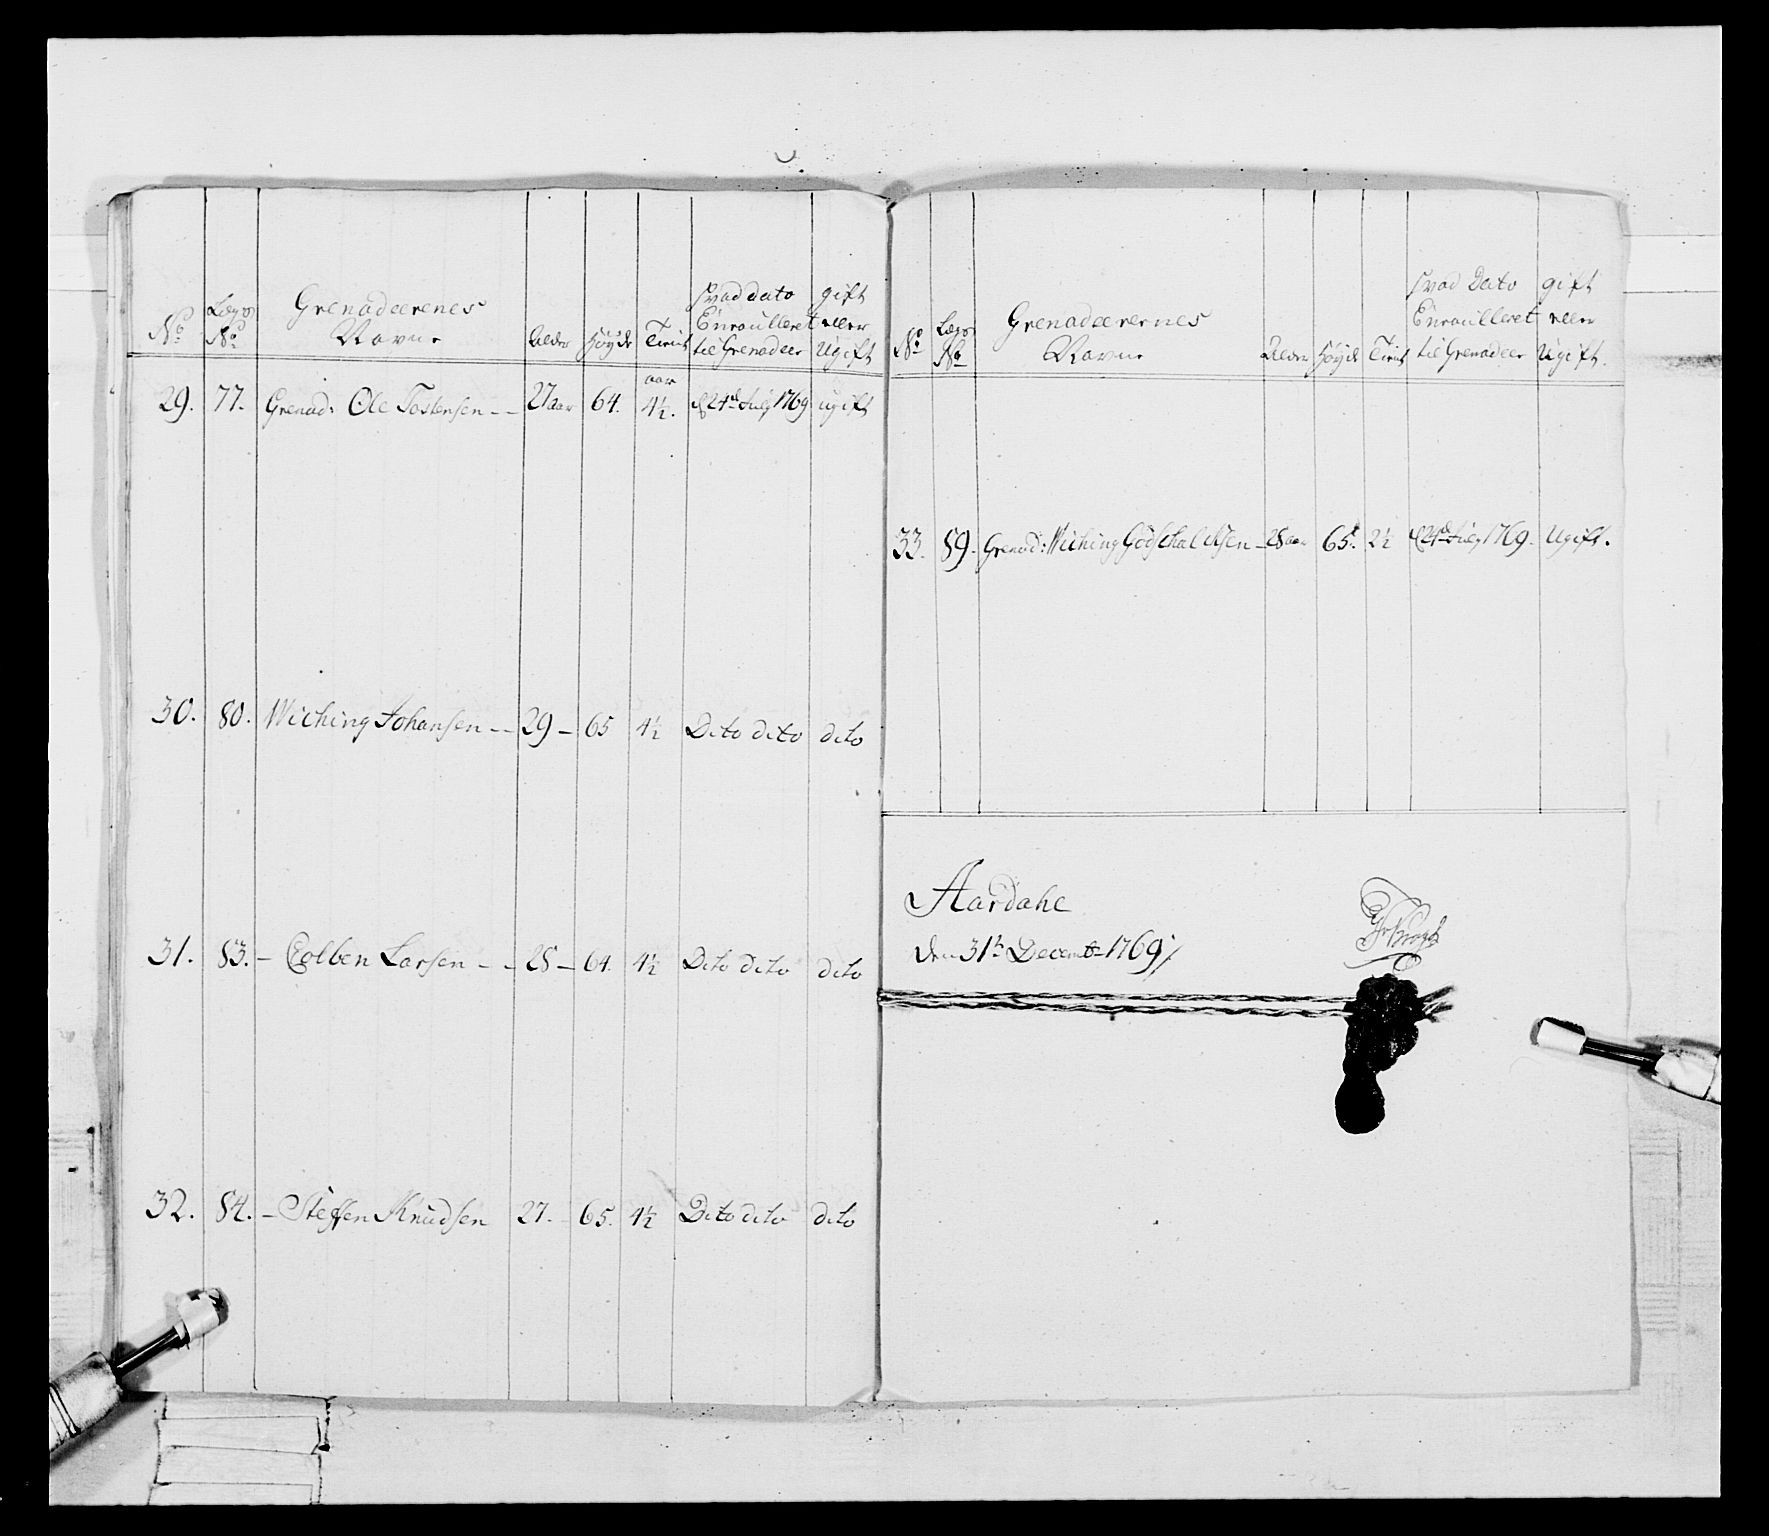 No
Lægs No
Grenadeerenes Navne
Alder
Høyde
Tienst
hvad dato Enroulleret til Grenadeer
gift eller Ugift
29. 77. Grenad: Ole Tostensen -- 27 aar 64. aar 4½. d 24de July 1769 ugift
30. 80. Wiching Johansen -- 29 - 65 4½ Dito dito dito
31. 83. - Colben Larsen -- 28 - 64. 4½ Dito dito dito
32. 84. - Steffen Knudsen 27. 65. 4½ Dito dito dito
No
Lægs No
Grenadeerernes Navne
Alder
Høyde
Tienst
hvad Dato Enroulleret til Grenadeer
gift eller Ugift.
33. 89. Grenad: Wiching Godschalcksen - 28 aar 65. 2½ d 24de July 1769. Ugift.
Aardahl
den 31te Decembr 1769